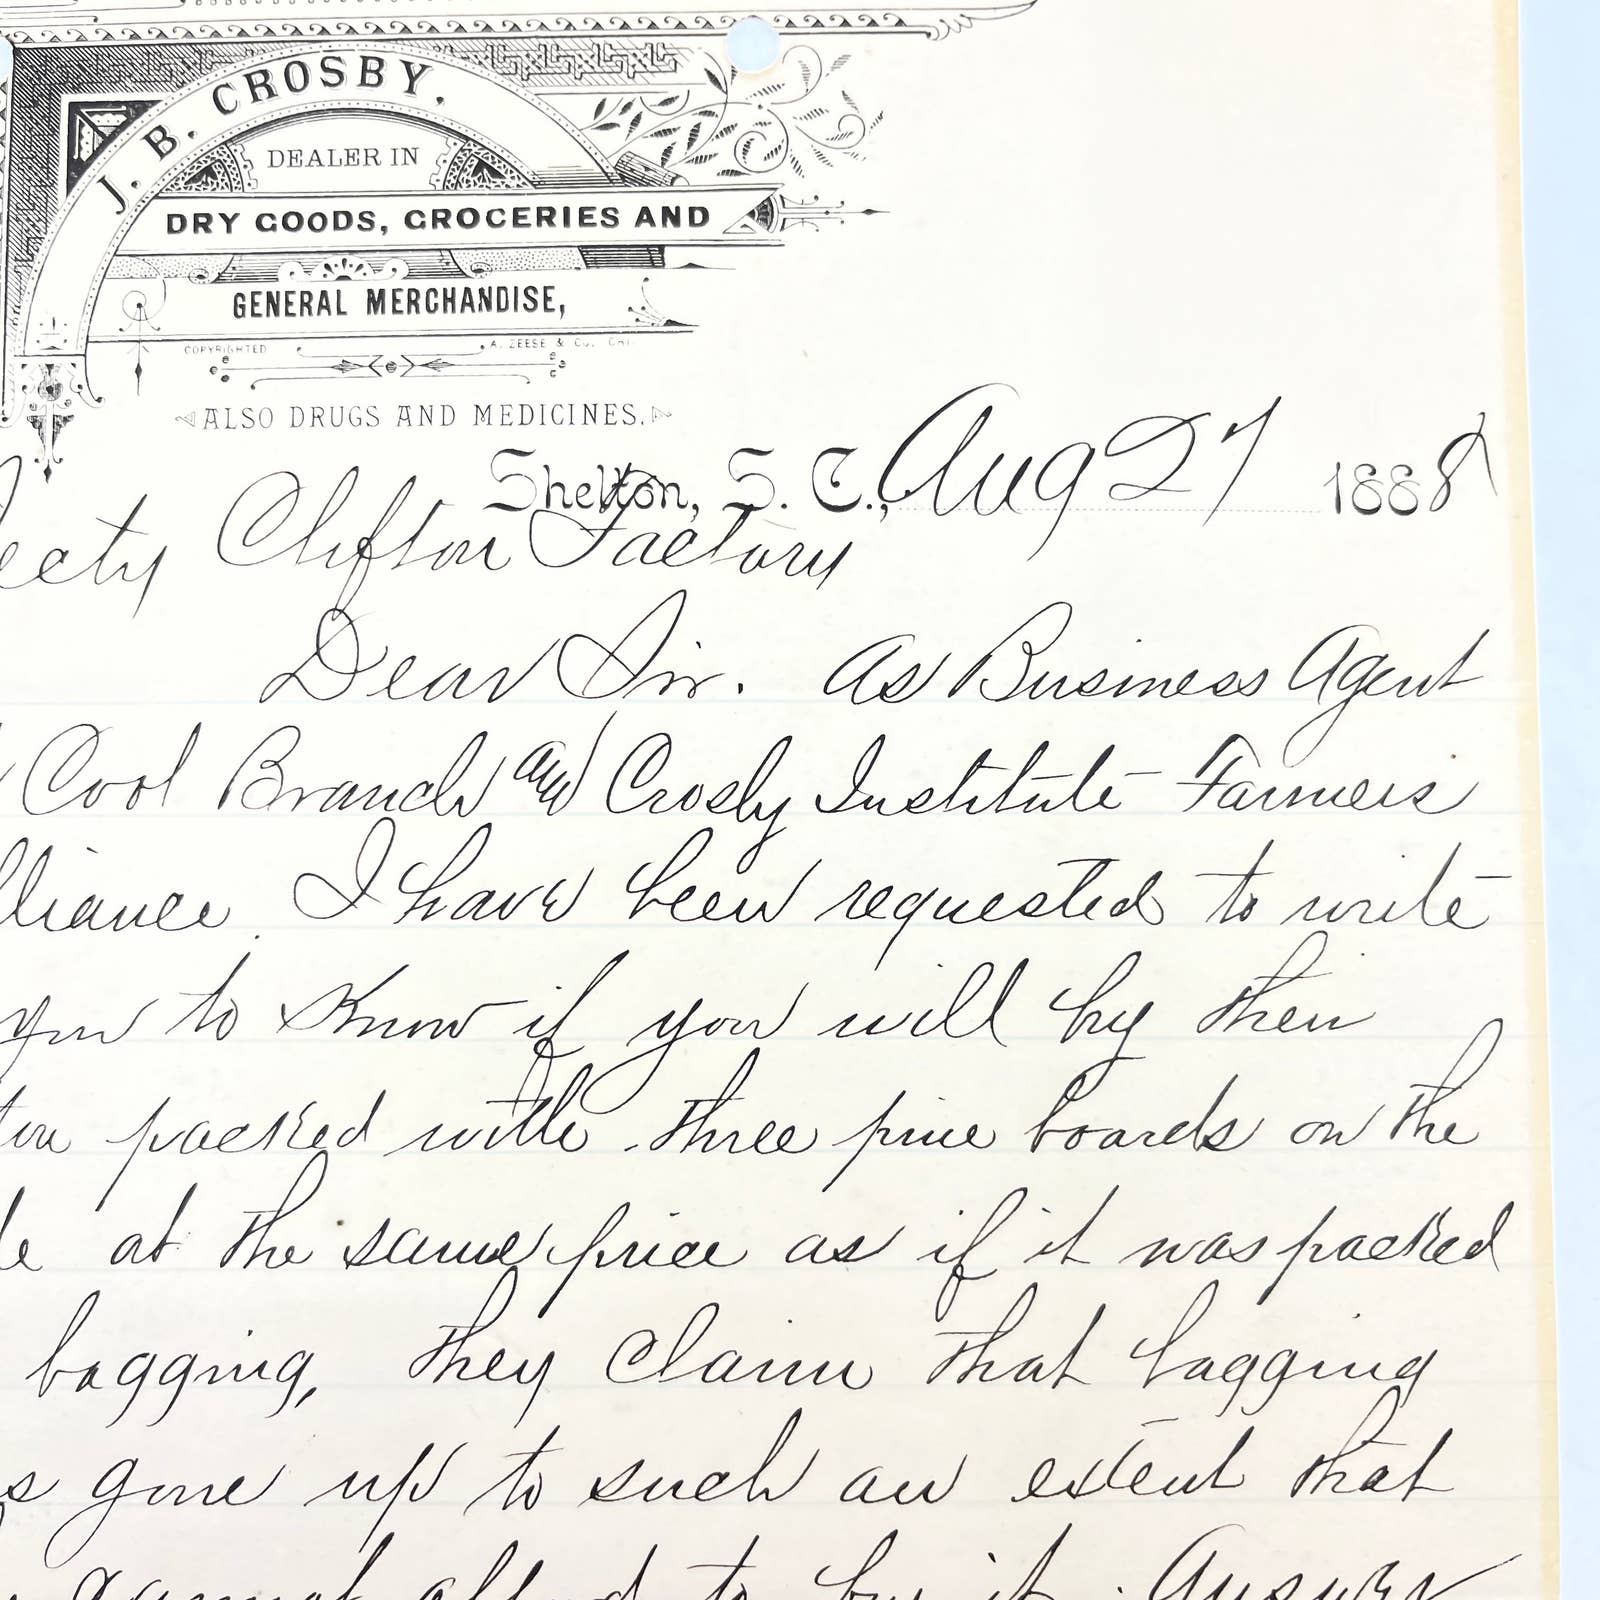 J. B. CROSBY.
DEALER IN
DRY GOODS, GROCERIES AND
GENERAL MERCHANDISE,
COPYRIGHTED A. ZEESE & CO. CHI.
ALSO DRUGS AND MEDICINES.
Shelton, S. C., Aug 27 1888
Clifton Factory
Dear Sir. As Business Agent
Cool Branch and Crosby Institute Farmers
lliance. I have been requested to write
you to Know if you will by their
ton packed with three pine boards on the
le at the same price as if it was packed
bagging, they Claim that bagging
s gone up to such an extent that
cannot afford to by it. Answer